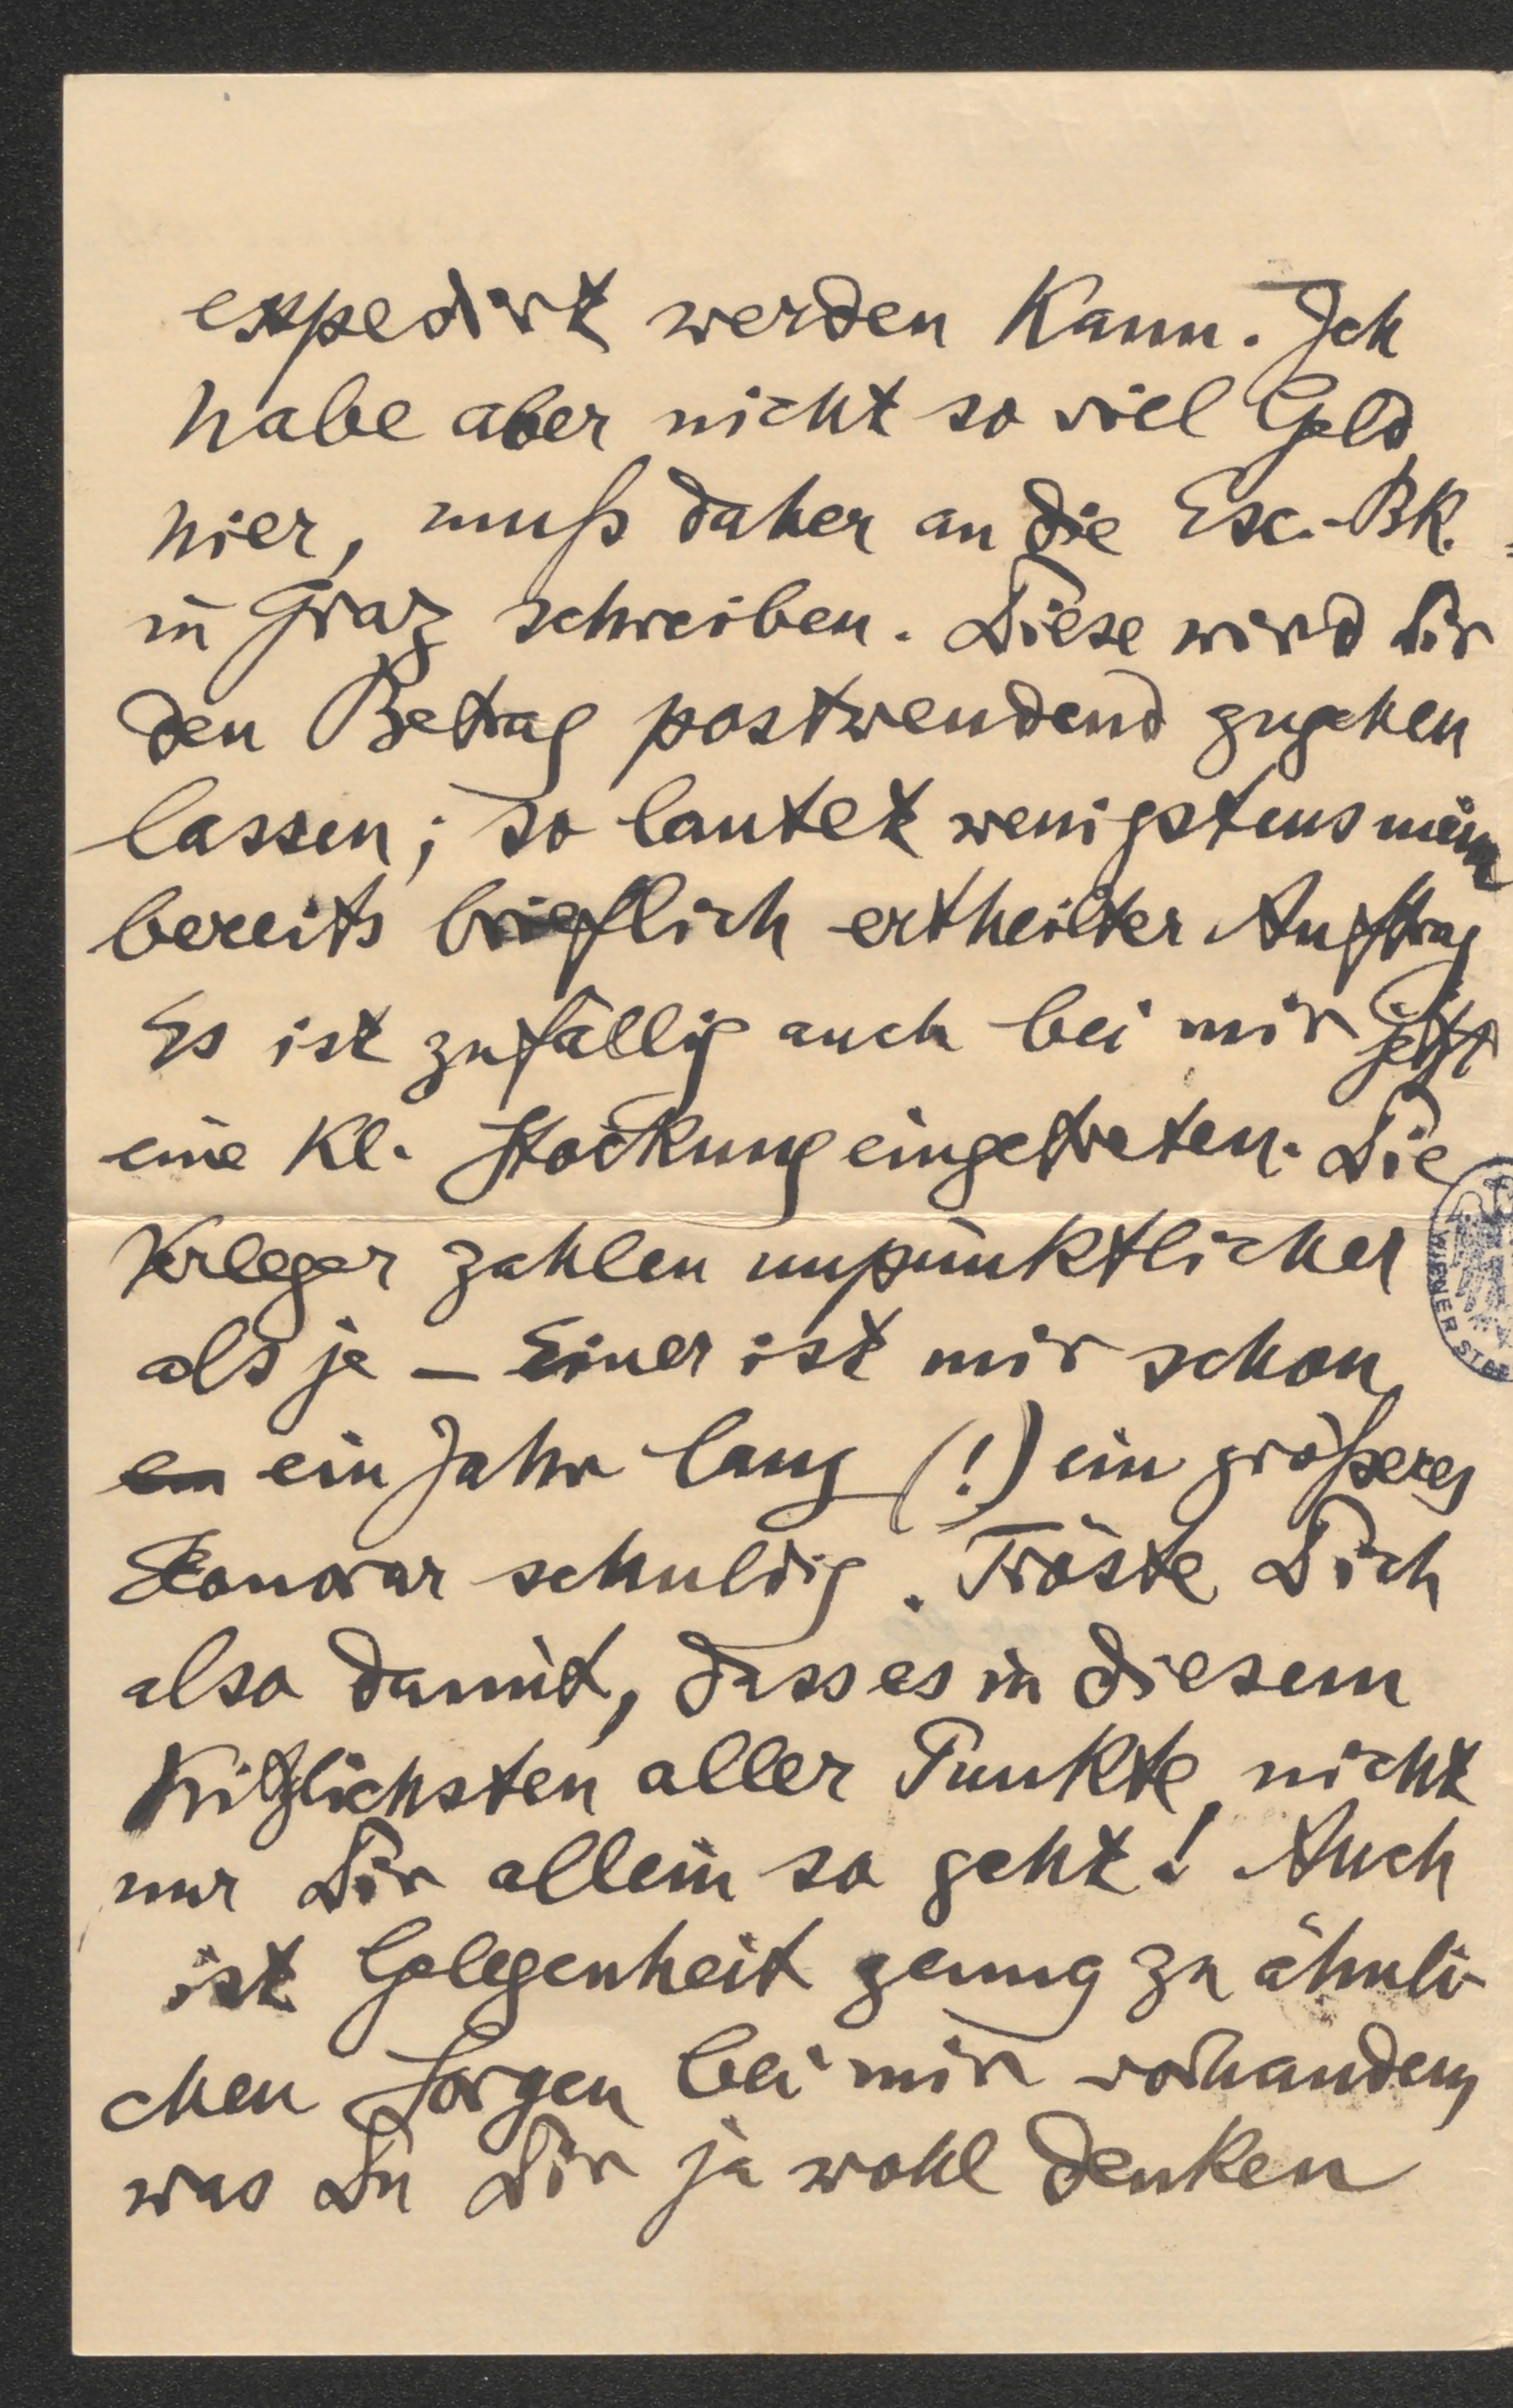 expedirt werden kann. Ich
habe aber nicht so viel Geld
hier, muß daher an die Esc.-Bk.
in Graz schreiben. Diese wird Dir
den Betrag postwendend zugehen
lassen; so lautet wenigstens mein
bereits brieflich ertheilter Auftrag
Es ist zufällig auch bei mir jetzt
eine kl. Stockung eingetreten. Die
Verleger zahlen unpünktlicher
als je – Einer ist mir schon
ein ein Jahr lang (!) ein größeres
Honorar schuldig. Tröste Dich
also damit, dass es in diesem
kitzlichsten aller Punkte nicht
nur Dir allein so geht! Auch
ist Gelegenheit genug zu ähnli-
chen Sorgen bei mir vorhanden,
was Du Dir ja wohl denken
WIENER